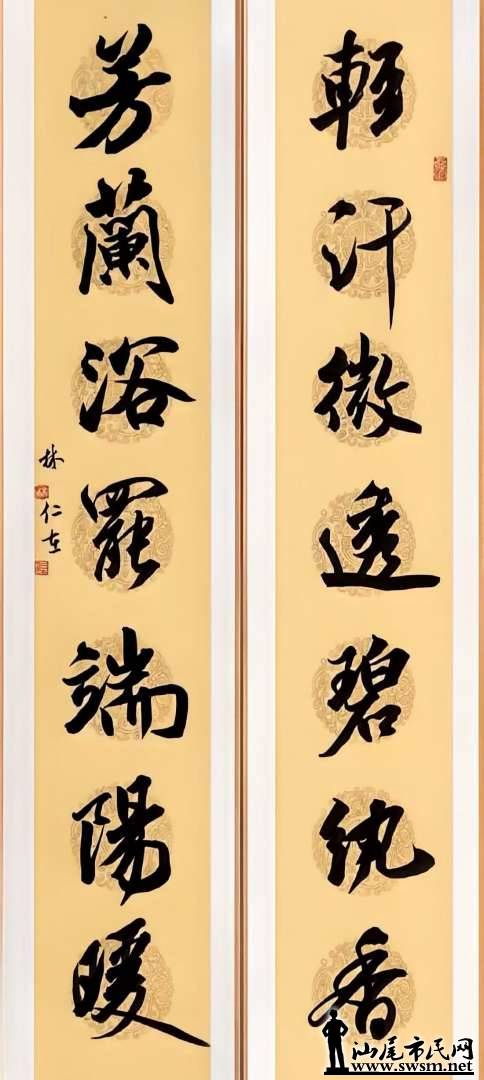 輕汗微透碧紈香
芳蘭浴罷端陽暖
林仁在
汕尾市民网
www.swsm.net